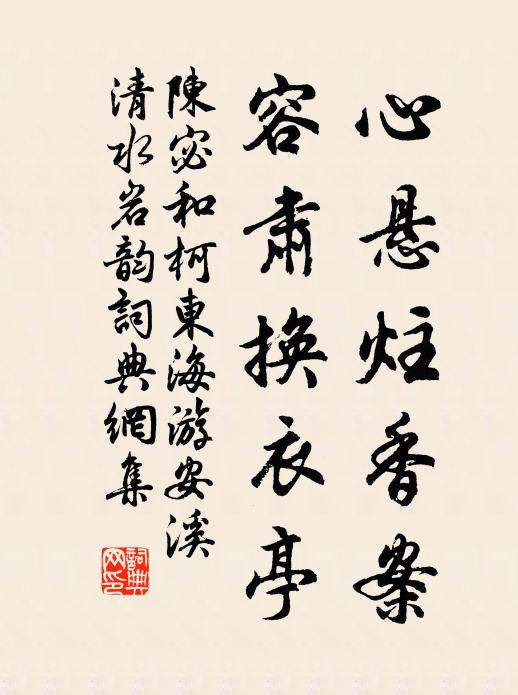 心悬炷香案
容肃換衣亭
陳宓和柯東海游安溪
清水岩韵詞典網集
詞典网印